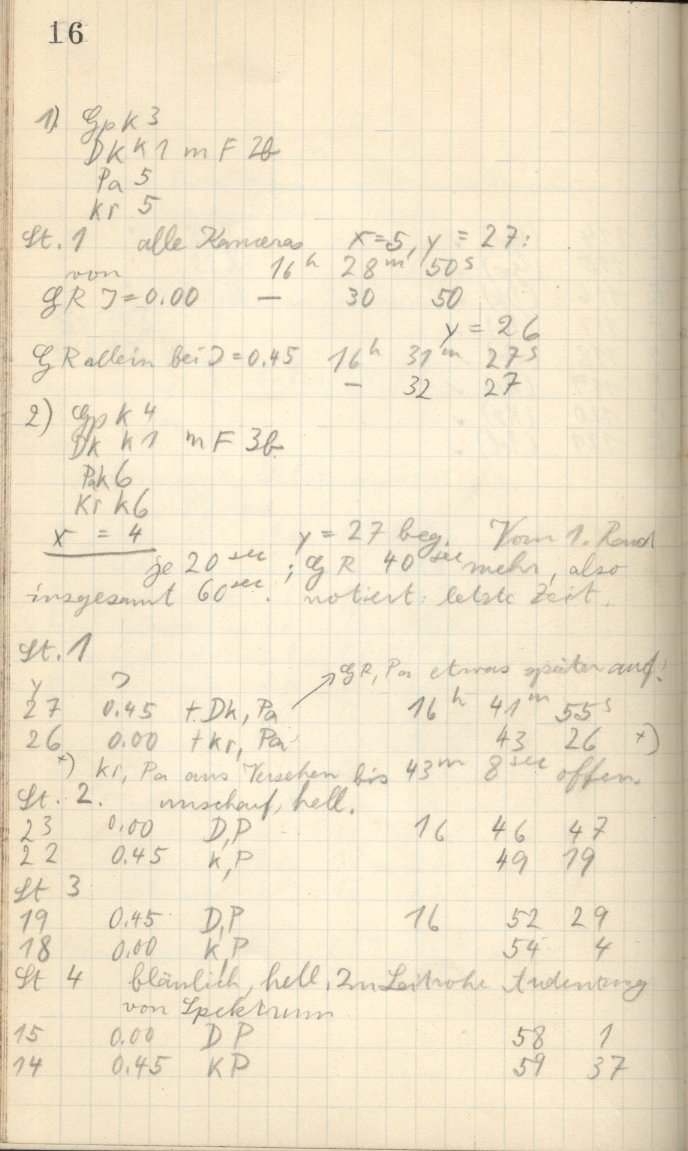 16
1) Gp K 3
Dk K 1 m F 2b
Pa 5
Kr 5
St. 1 alle Kameras x=5, y = 27:
von 16h 28m 50s
GR J=0.00 — 30 50
y = 26
GR allein bei J=0.45 16h 31m 27s
— 32 27
2) Gp K 4
Dk K 1 m F 3b
Pa K6
Kr K6
x = 4 y = 27 beg. Vom 1. Rand
je 20 sec; GR 40 sec mehr, also
insgesamt 60 sec. notiert: letzte Zeit.
St. 1
GR, Pa etwas später auf!
y J
27 0.45 + Dk, Pa 16h 41m 55s
26 0.00 + Kr, Pa 43 26 +)
+) Kr, Pa aus Versehen bis 43m 8sec offen.
St. 2. unscharf, hell.
23 0.00 D,P 16 46 47
22 0.45 K,P 49 19
St 3
19 0.45 D,P 16 52 29
18 0.00 K,P 54 4
St 4 bläulich, hell. Im Leitrohr Andeutung
von Spektrum
15 0.00 D P 58 1
14 0.45 K P 59 37